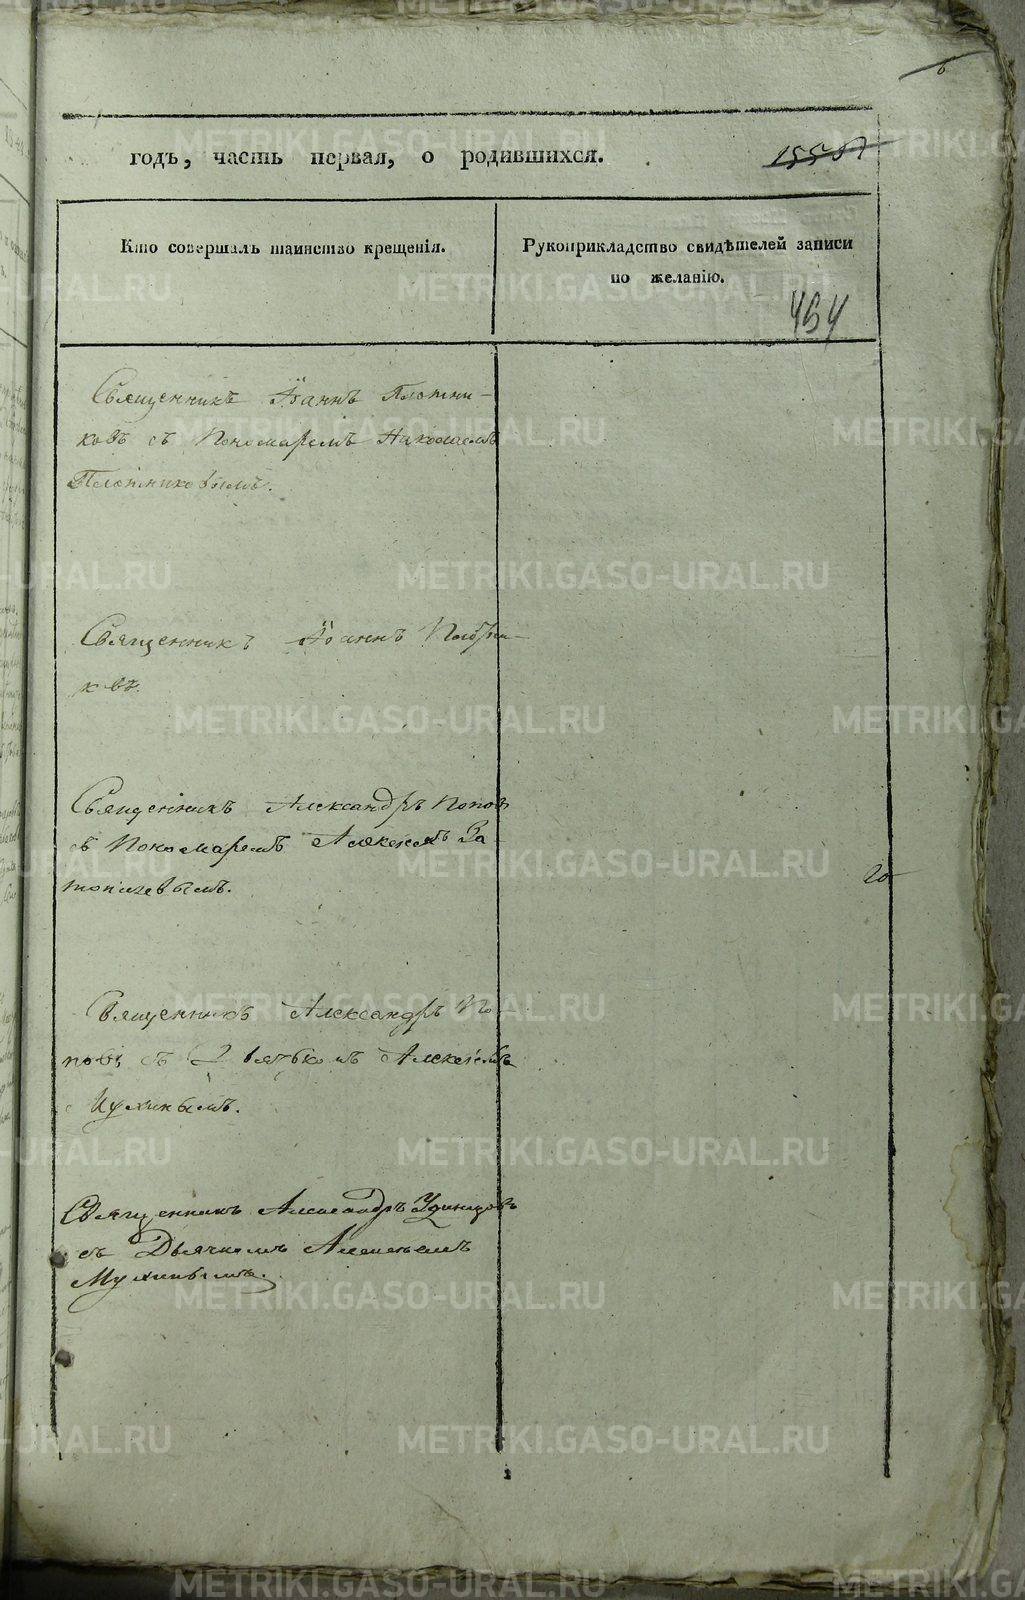 6
годъ, часть первая, о родившихся.
Кто совершалъ таинство крещенія.
Рукоприкладство свидѣтелей записи
по желанію.
454
Священникъ Іоаннъ Плотни-
ковъ съ Пономаремъ Николаемъ
Плотниковымъ.
Священникъ Іоаннъ
ковъ.
Священникъ Александръ Поповъ
съ Пономаремъ Алексѣемъ За-
топляевымъ.
Священникъ Александръ По-
повъ съ Дьячкомъ Алексѣемъ
Мухинымъ.
Священникъ Александръ Удинцовъ
съ Дьячкомъ Алексѣемъ
Мухинымъ.
METRIKI.GASO-URAL.RU